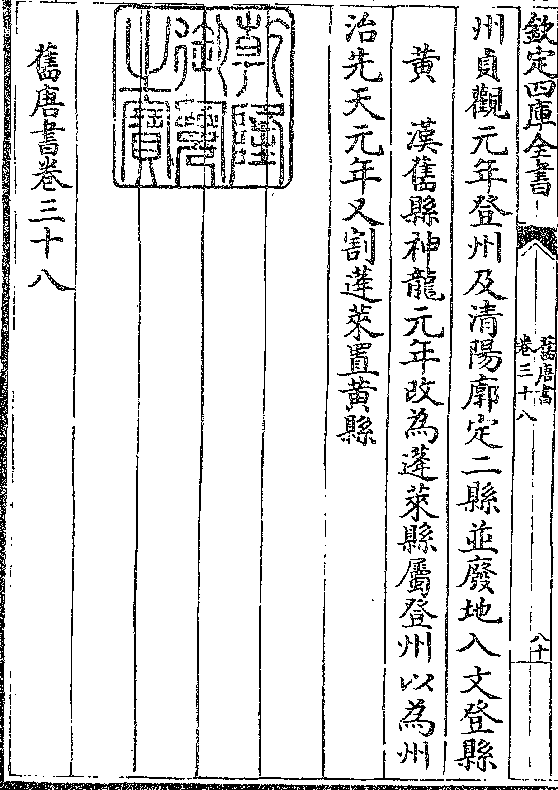 欽定四庫全書
舊唐書
卷三十八
八十
州貞觀元年登州及清陽廓定二縣並廢地入文登縣
黃　漢舊縣神龍元年改為蓬萊縣屬登州以為州
治先天元年又割蓬萊置黃縣
乾隆御覽之寶
舊唐書卷三十八